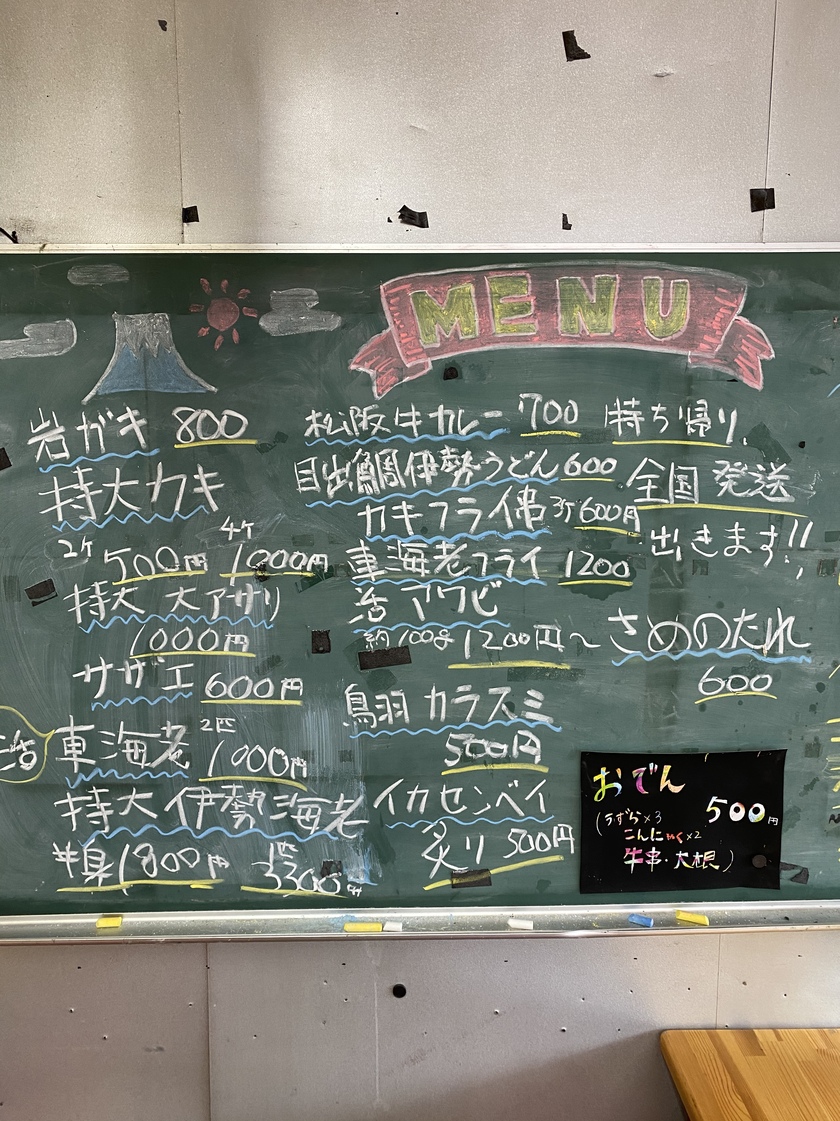 MENU
岩ガキ 800
特大カキ
2ケ 500円 4ケ 1000円
特大 大アサリ
1000円
サザエ 600円
活 車海老 2匹 1000円
特大 伊勢海老
半身 1800円 3300円
松阪牛カレー 700
目出鯛伊勢うどん 600
カキフライ串 3ケ 600円
車海老フライ 1200
活 アワビ
約100g 1200円~
鳥羽 カラスミ
500円
イカセンベイ
炙り 500円
持ち帰り、
全国 発送
出きます!!
さめのたれ
600
おでん
500円
(うずら×3
こんにゃく×2
牛串・大根)